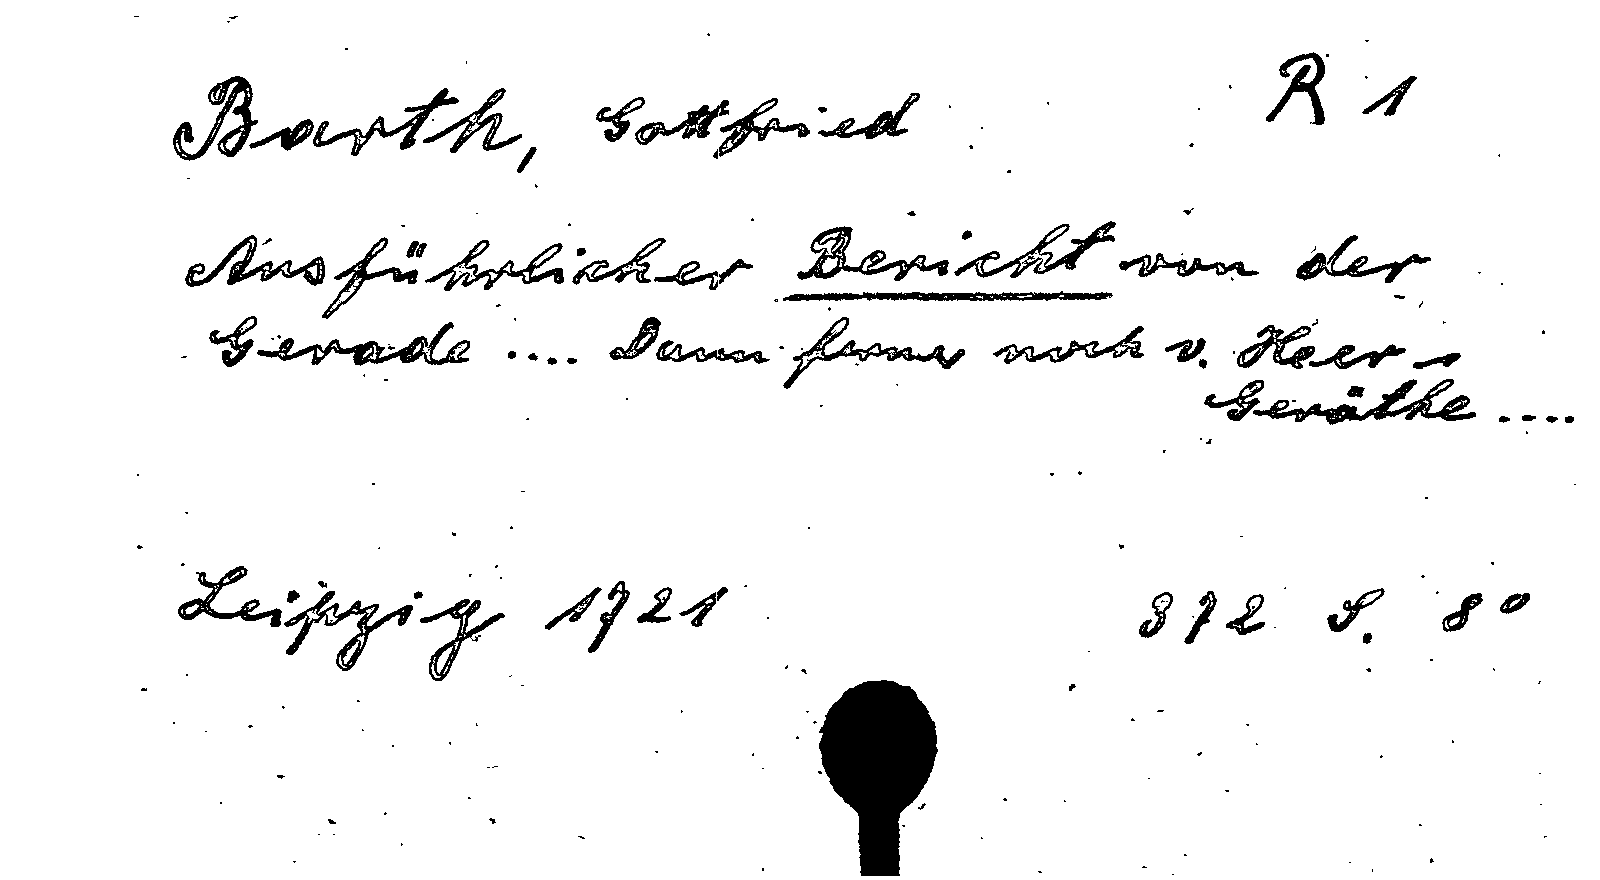 Barth, Gottfried R 1
Ausführlicher Bericht von der
Gerade .... Dann ferner noch v. Heer-
Geräthe ....
Leipzig 1721 372 S. 8°